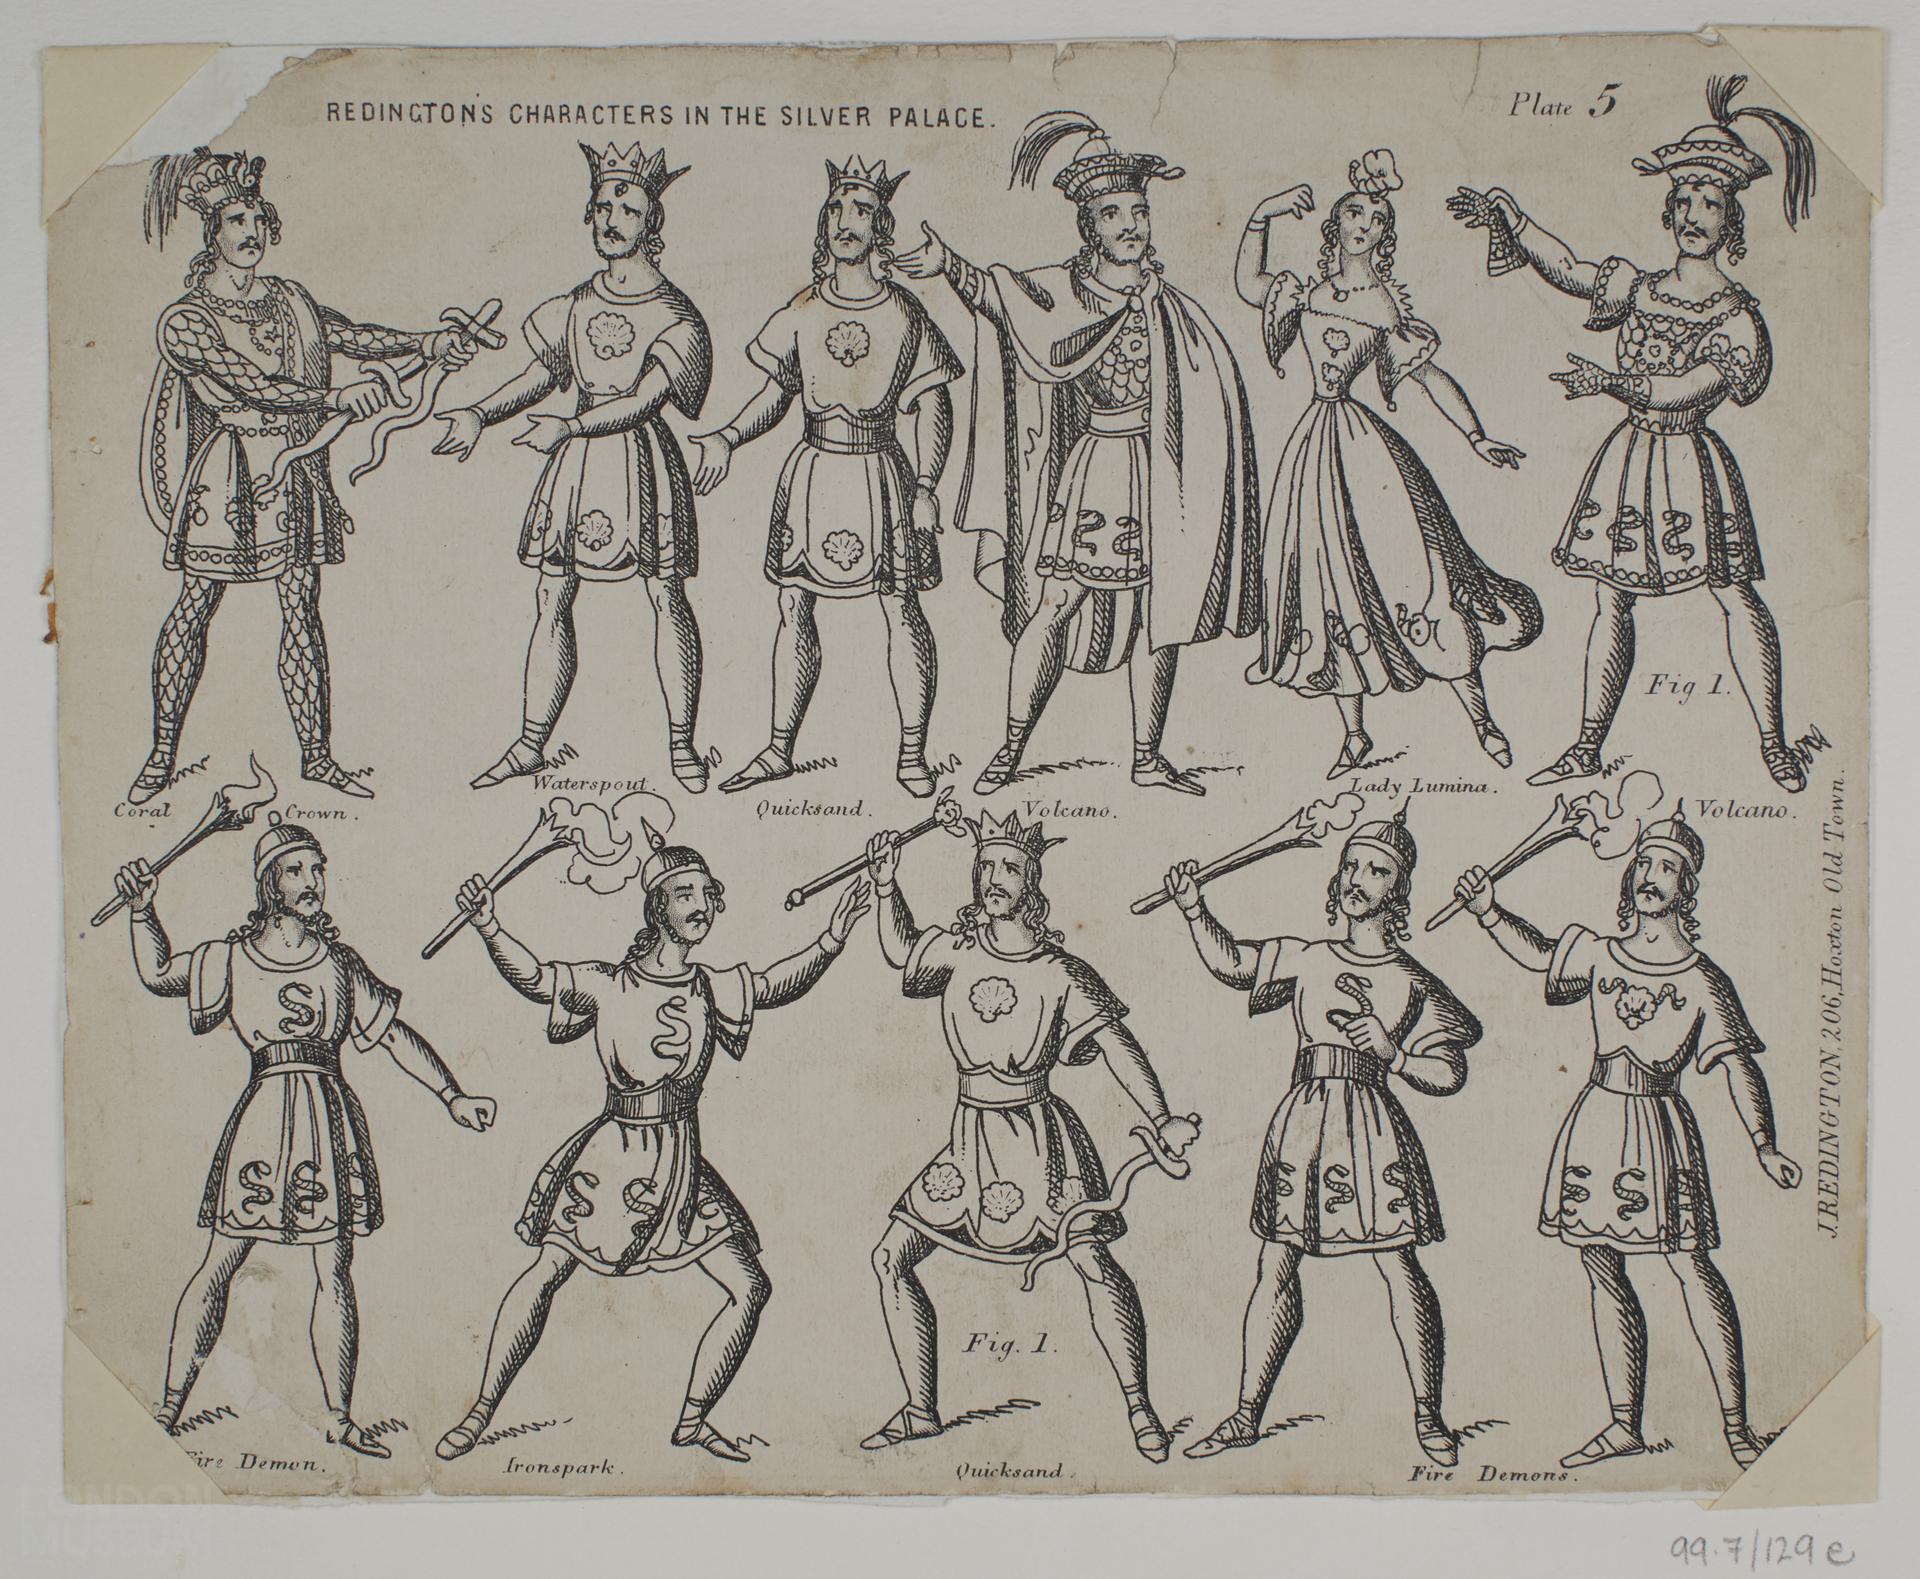 REDINGTON'S CHARACTERS IN THE SILVER PALACE.
Plate 5
Fig 1.
Coral Crown.
Waterspout.
Quicksand.
Volcano.
Lady Lumina.
Volcano.
J. REDINGTON, 206, Hoxton Old Town.
Fig. 1.
Fire Demon.
Ironspark.
Quicksand.
Fire Demons.
LONDON
MUSEUM
99.7/129e